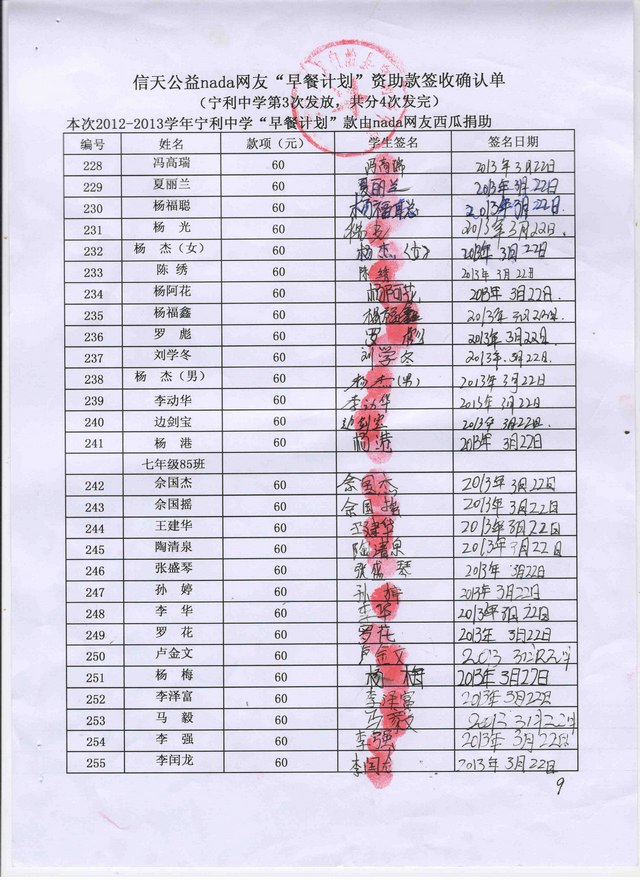 信天公益nada网友“早餐计划”资助款签收确认单
(宁利中学第3次发放,共分4次发完)
本次2012-2013学年宁利中学“早餐计划”款由nada网友西瓜捐助
编号 姓名 款项(元) 学生签名 签名日期
228 冯高瑞 60 冯高瑞 2013年3月22日
229 夏丽兰 60 夏丽兰 2013年3月22日
230 杨福聪 60 杨福聪 2013年3月22日.
231 杨 光 60 杨光 2013年3月22日.
232 杨 杰(女) 60 杨杰(女) 2013年3月22日
233 陈 绣 60 陈绣 2013年3月22日
234 杨阿花 60 杨阿花 2013年3月22日.
235 杨福鑫 60 杨福鑫 2013年3月22日.
236 罗 彪 60 罗彪 2013年3月22日.
237 刘学冬 60 刘学冬 2013年3月22日.
238 杨 杰(男) 60 杨杰(男) 2013年3月22日
239 李动华 60 李动华 2013年3月22日
240 边剑宝 60 边剑宝 2013年3月22日.
241 杨 港 60 杨港 2013年3月22日
七年级85班
242 佘国杰 60 佘国杰 2013年3月22日
243 佘国摇 60 佘国摇 2013年3月22日
244 王建华 60 王建华 2013年3月22日
245 陶清泉 60 陶清泉 2013年3月22日
246 张盛琴 60 张盛琴 2013年3月22日
247 孙 婷 60 孙婷 2013年3月22日
248 李 华 60 李华 2013年3月22日
249 罗 花 60 罗花 2013年3月22日
250 卢金文 60 卢金文 2013 3月22日
251 杨 梅 60 杨梅 2013年3月22日
252 李泽富 60 李泽富 2013年3月22日
253 马 毅 60 马毅 2013 3月22日
254 李 强 60 李强 2013年3月22日
255 李闰龙 60 李国龙 2013年3月22日
9